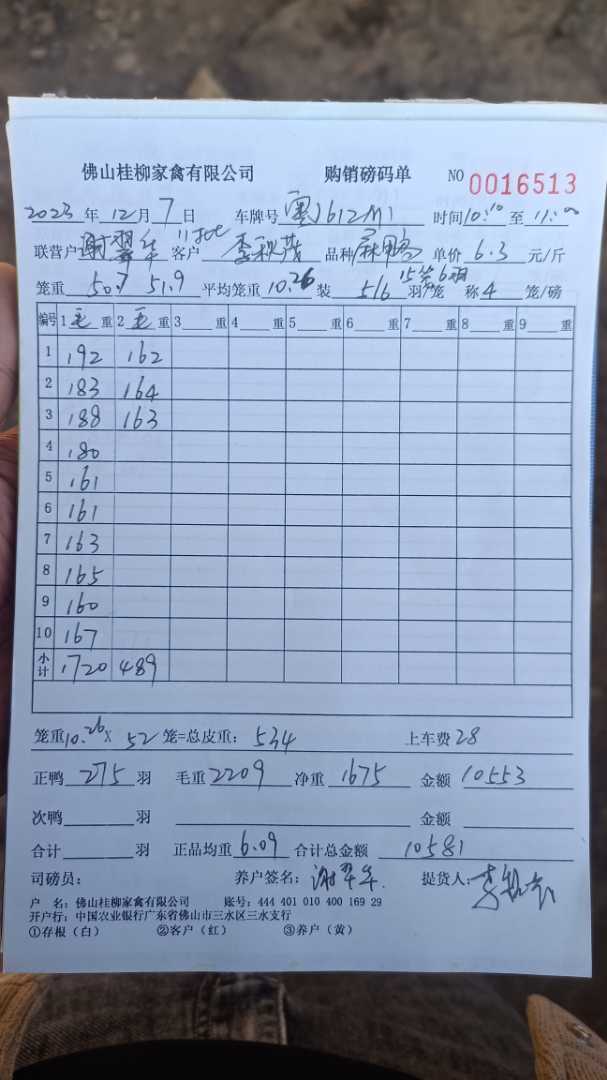 佛山桂柳家禽有限公司 购销磅码单 NO 0016513
2023年12月7日 车牌号 粤J612M1 时间10:10至11:00
联营户 谢翠华 客户 李秋茂 品种 麻鸭 单价 6.3 元/斤
15笼6羽
笼重 50.7 51.9 平均笼重 10.26 装 5/6 羽/笼 称4 笼/磅
编号 1 毛 重 2 毛 重 3 重 4 重 5 重 6 重 7 重 8 重 9 重
1 192 162
2 183 164
3 188 163
4 180
5 161
6 161
7 163
8 165
9 160
10 167
小计 1720 489
笼重10.26 X 52 笼=总皮重: 534 上车费 28
正鸭 275 羽 毛重 2209 净重 1675 金额 10553
次鸭 羽 金额
合计 羽 正品均重 6.09 合计总金额 10581
司磅员: 养户签名: 谢翠华 提货人:
户 名: 佛山桂柳家禽有限公司 账号: 444 401 010 400 169 29
开户行: 中国农业银行广东省佛山市三水区三水支行
①存根(白) ②客户(红) ③养户(黄)